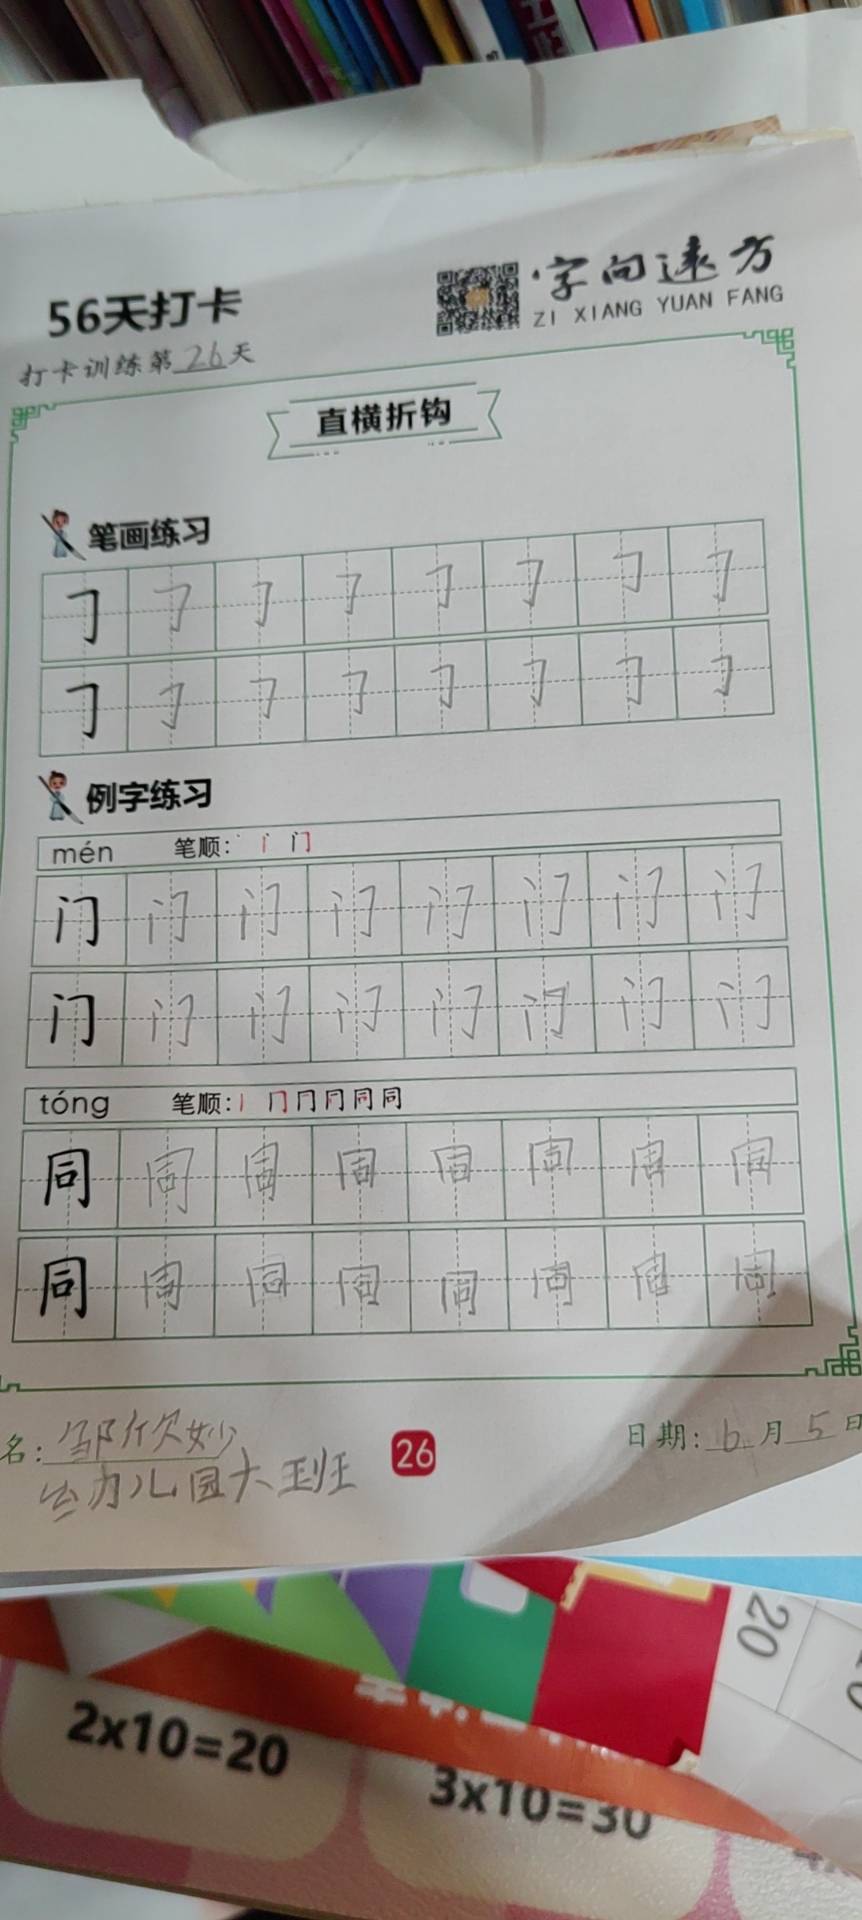 56天打卡
字向远方
ZI XIANG YUAN FANG
打卡训练第26天
直横折钩
笔画练习
𠃌 𠃌 𠃌 𠃌 𠃌 𠃌 𠃌 𠃌
𠃌 𠃌 𠃌 𠃌 𠃌 𠃌 𠃌 𠃌
例字练习
mén 笔顺: 丶 门
门 门 门 门 门 门 门 门
门 门 门 门 门 门 门 门
tóng 笔顺: 丨 冂 冂 同 同
同 同 同 同 同 同 同 同
同 同 同 同 同 同 同 同
名: 邹欣妙
幼儿园大班
26
日期: 6月5日
20
2x10=20
3x10=30